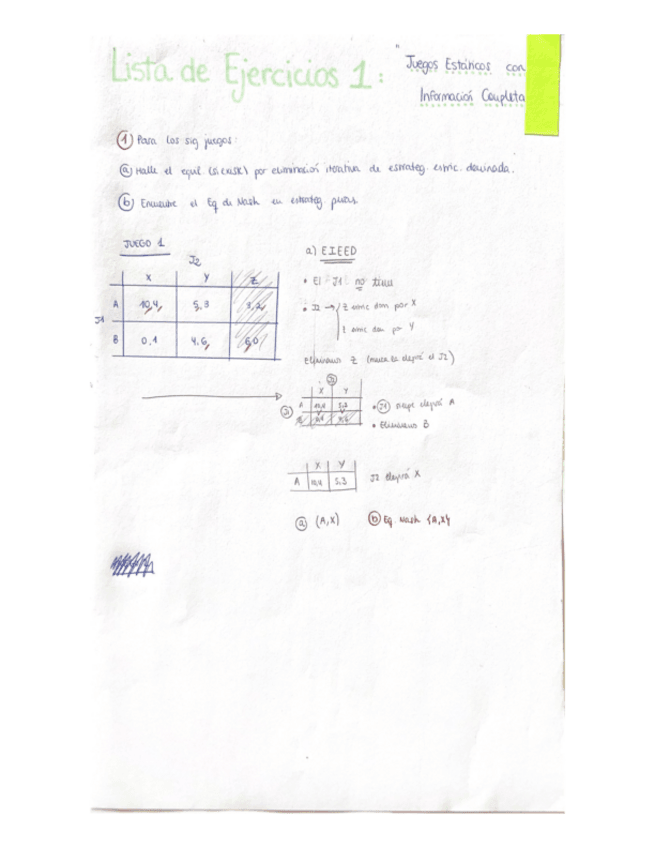 Lista de Ejercicios 1:
" Juegos Estáticos con
Información Completa
① Para los sig juegos:
ⓐ Halle el equil (si existe) por eliminación iterativa de estrateg. estric. dominada.
ⓑ Encuentre el Eq de Nash en estrateg puras
JUEGO 1
J2
X Y Z
A 10,4 5,3 3,2
J1
B 0,1 4,6 6,0
a) EIEED
• El J1 no tiene
• J2 → Z estric dom por X
Z estric dom por Y
Eliminamos Z (nunca la elegirá el J2)
J2
X Y
A 10,4 5,3
J1
B 0,1 4,6
• J1 siempre elegirá A
• Eliminamos B
X Y
A 10,4 5,3
J2 elegirá X
ⓐ (A,X)
ⓑ Eq. Nash {A,X}